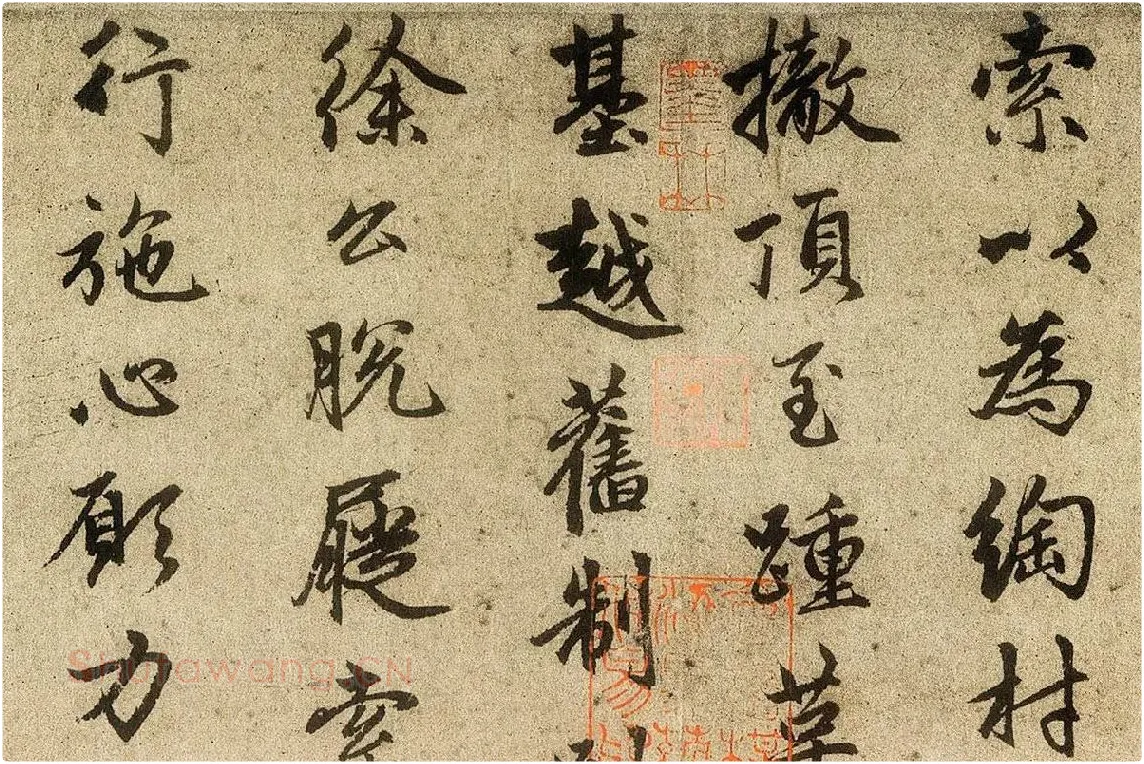 索以為綯村
撤頂至踵革
基越舊制
徐公脫屣
行施心願力
Shufawang.CN